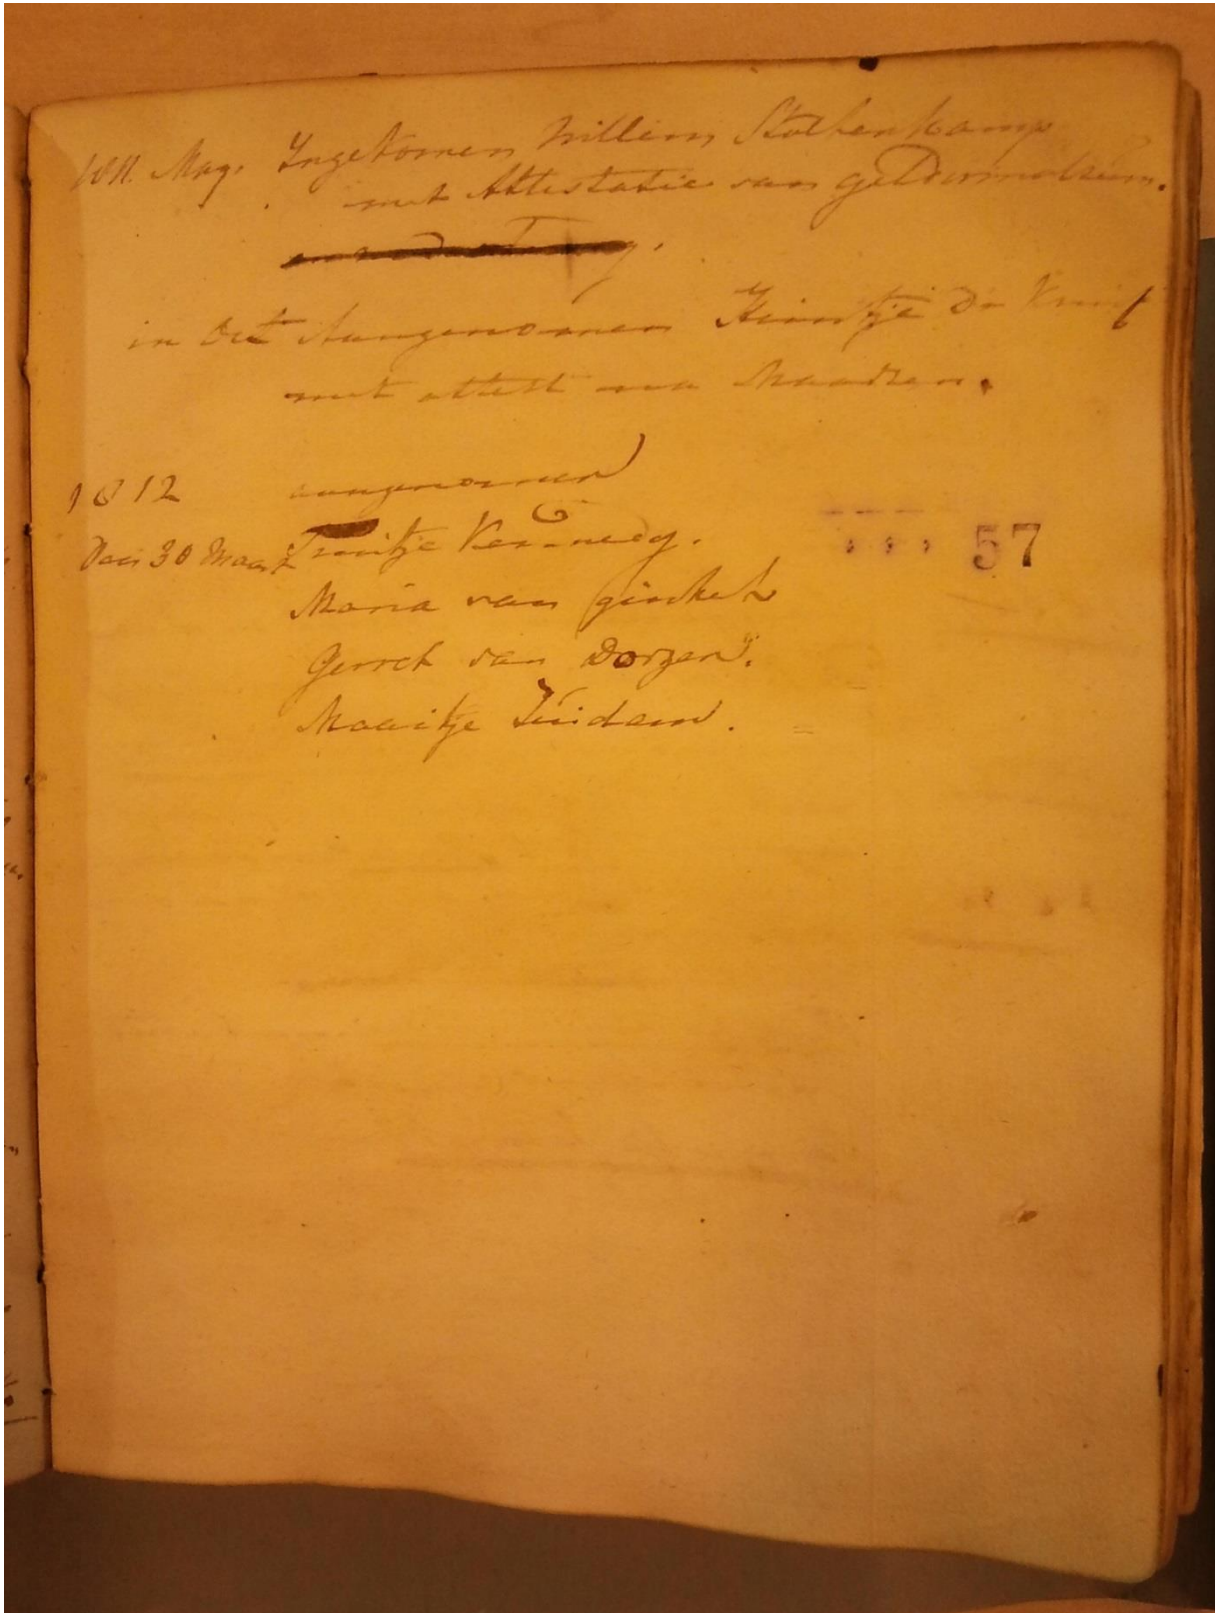 1811. May. Ingekomen Willem Stolkenkamp
met Attestatie van Geldermalsen.
in Oct Aangenomen Heintje De Kruif
met attest na Maarsen.
1812 aangenomen
Den 30 Maart Truitje Kennedy.
57
Maria van Ginkel
Gerret van Dorzen.
Maaitje Zuidam.